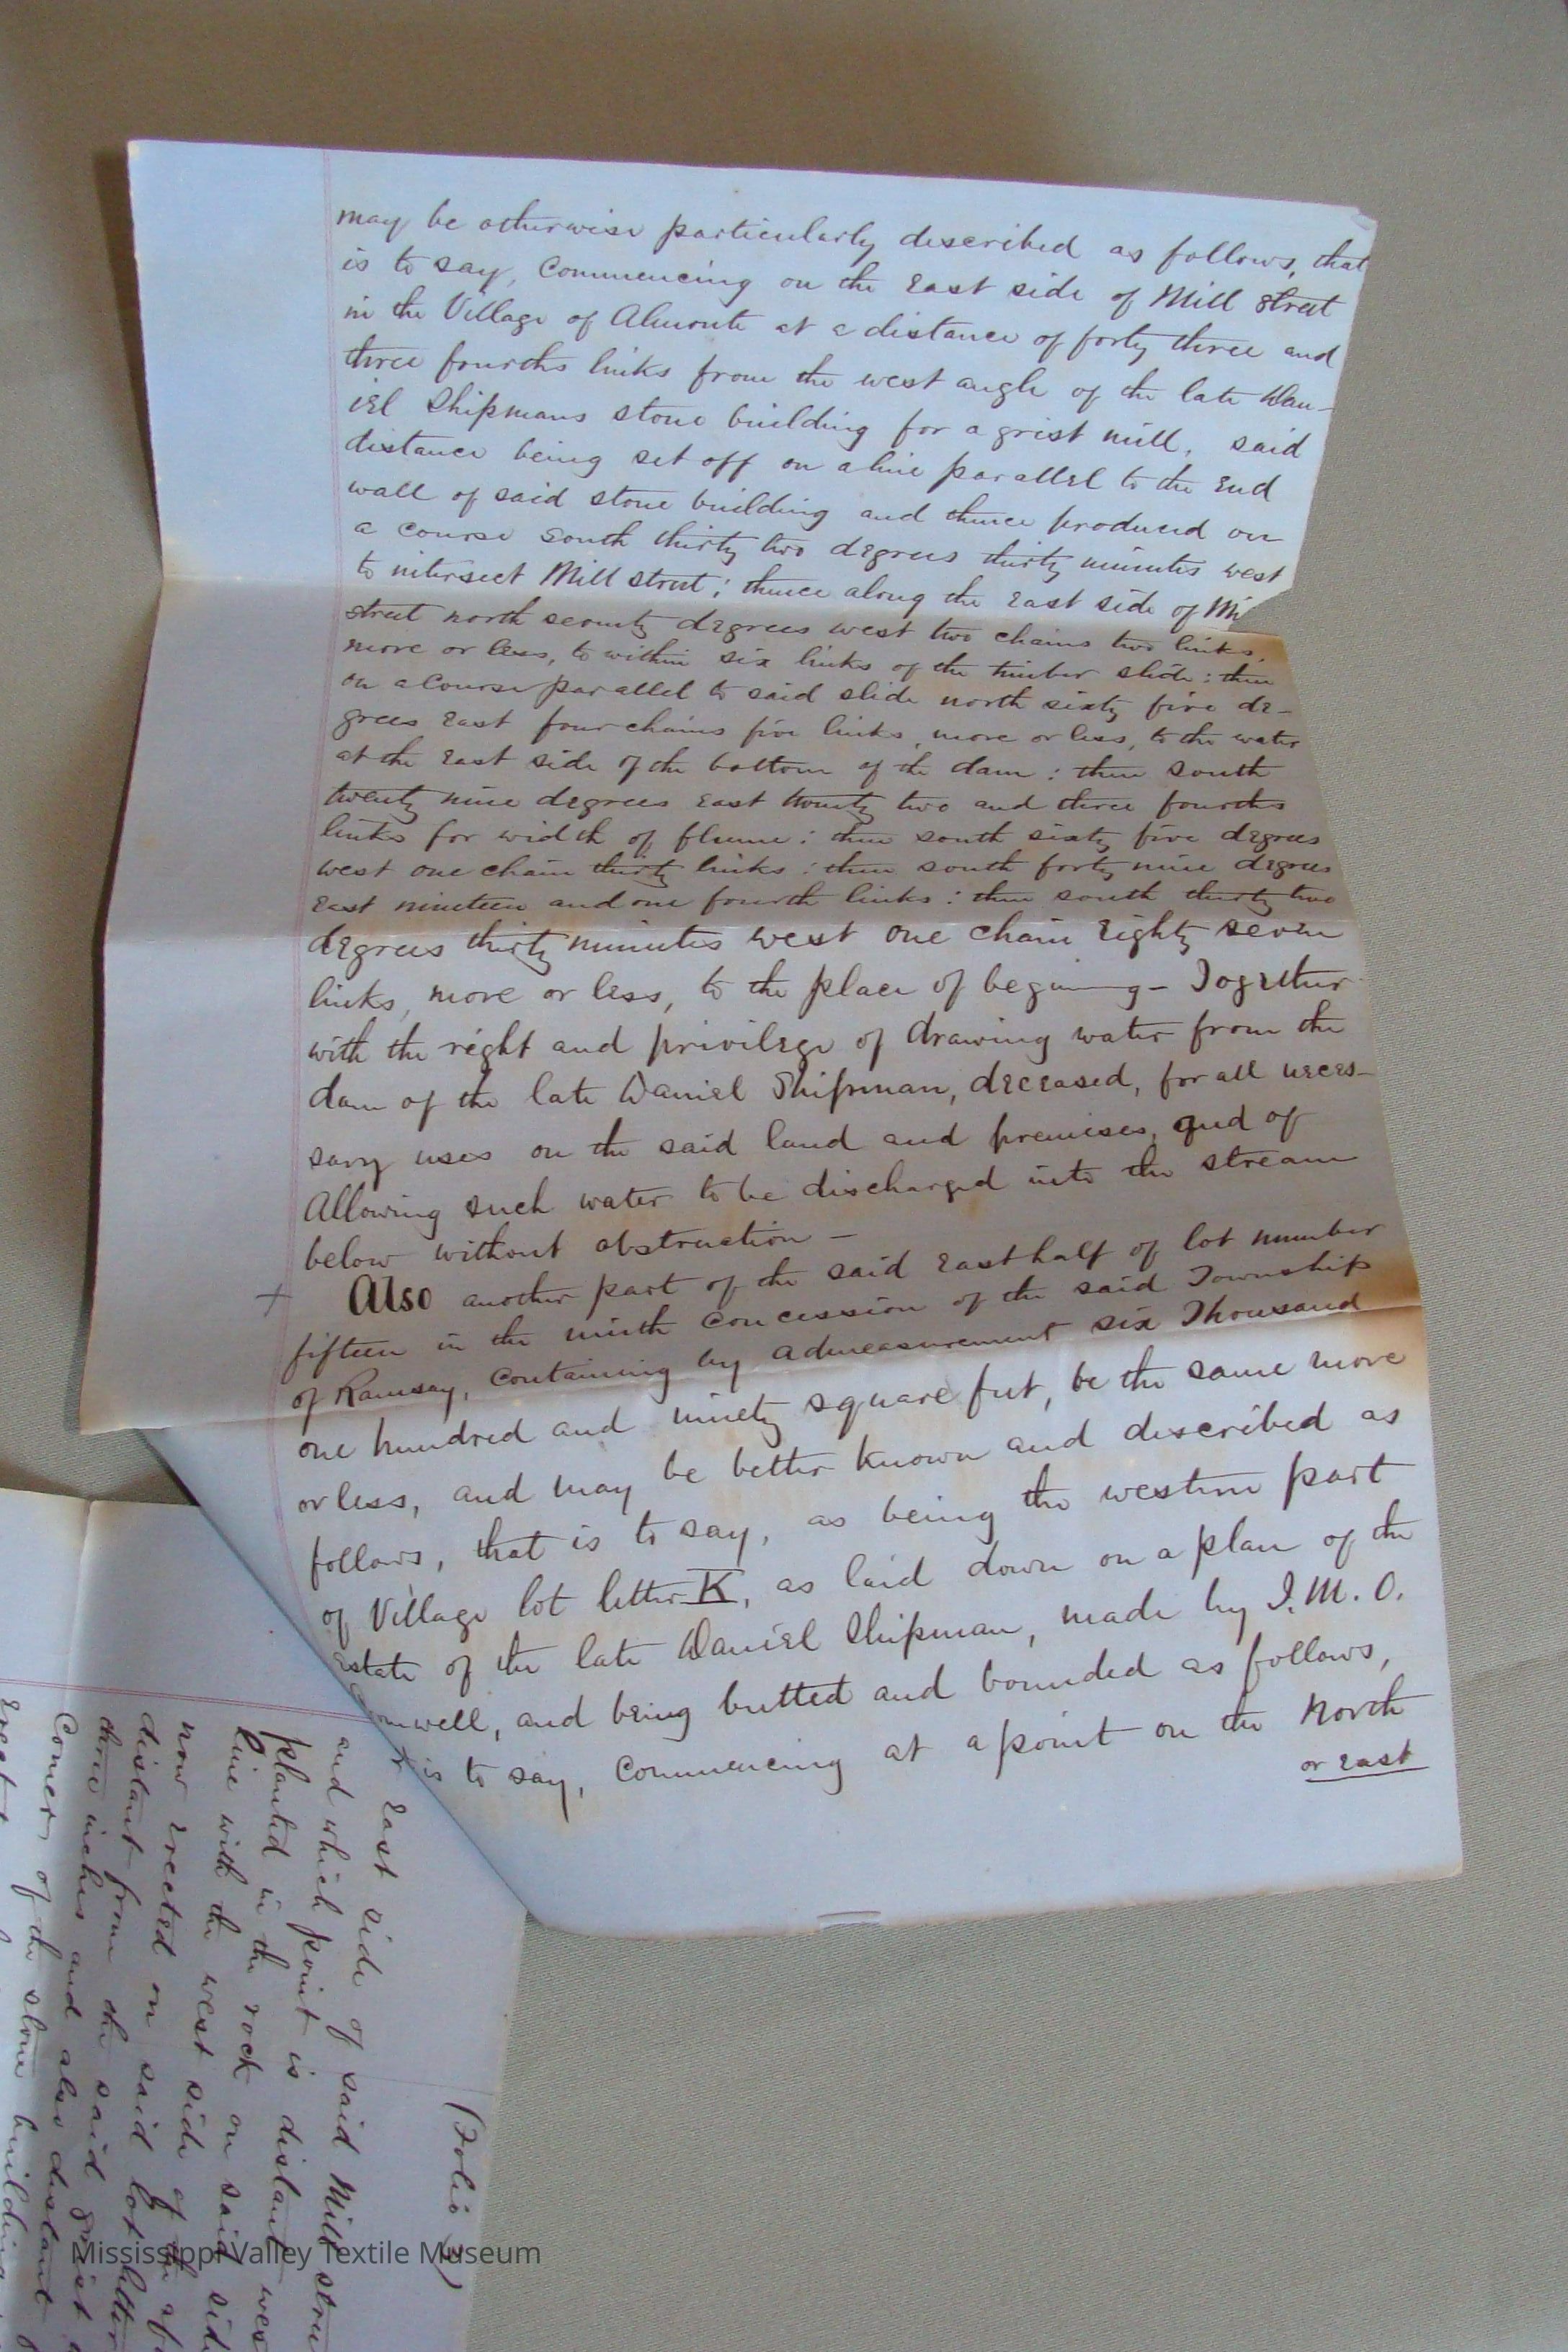 may be otherwise particularly described as follows, that
is to say, Commencing on the East side of Mill Street
in the Village of Almonte at a distance of forty three and
three fourths links from the west angle of the late Dan-
iel Shipmans stone building for a grist mill, said
distance being set off on a line parallel to the End
wall of said stone building and thence produced on
a course South thirty two degrees thirty minutes west
to intersect Mill street; thence along the East side of Mi
street north seventy degrees west two chains two links,
more or less, to within six links of the timber slide: then
on a Course parallel to said slide north sixty five de-
grees East four chains five links, more or less, to the water
at the East side of the bottom of the dam: then South
twenty nine degrees East twenty two and three fourths
links for width of flume: then south sixty five degrees
west one chain thirty links: then south forty nine degrees
East nineteen and one fourth links: then south thirty two
degrees thirty minutes west one chain Eighty seven
links, more or less, to the place of begining - Together
with the right and privilege of drawing water from the
dam of the late Daniel Shipman, deceased, for all neces-
sary uses on the said land and premises, and of
Allowing such water to be discharged into the stream
below without obstruction -
+ Also another part of the said East half of lot number
fifteen in the ninth Concession of the said Township
of Ramsay, Containing by admeasurement six Thousand
one hundred and ninety square feet, be the same more
or less, and may be better known and described as
follows, that is to say, as being the western part
of Village lot letter K, as laid down on a plan of the
Estate of the late Daniel Shipman, made by J. M. O.
well, and being butted and bounded as follows,
is to say, Commencing at a point on the North
or East
(Folio 3)
East side of said Mill stre
and which point is distant wes
planted in the rock on said sid
line with the west side of the
now Erected on said lot letter
distant from the said grist
three inches and also distant
Corner of the stone building
Erect
Mississippi Valley Textile Museum